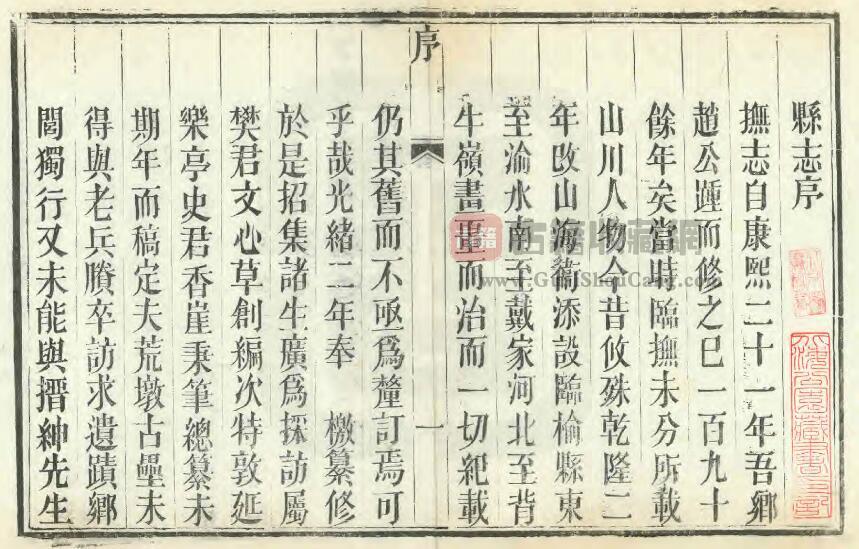 縣志序
撫志自康熙二十一年吾鄉
趙公踵而修之已一百九十
餘年矣當時臨撫未分所載
山川人物今昔攸殊乾隆二
年改山海衛添設臨榆縣東
至渝水南至戴家河北至背
牛嶺畫畺而治而一切紀載
序
一
仍其舊而不亟爲釐訂焉可
乎哉光緒二年奉 檄纂修
於是招集諸生廣爲採訪屬
樊君文心草創編次特敦延
樂亭史君香崖秉筆總纂未
期年而稿定夫荒墩古壘未
得與老兵賸卒訪求遺蹟鄉
閭獨行又未能與搢紳先生
古籍收藏網
www.GuJiShouCang.com